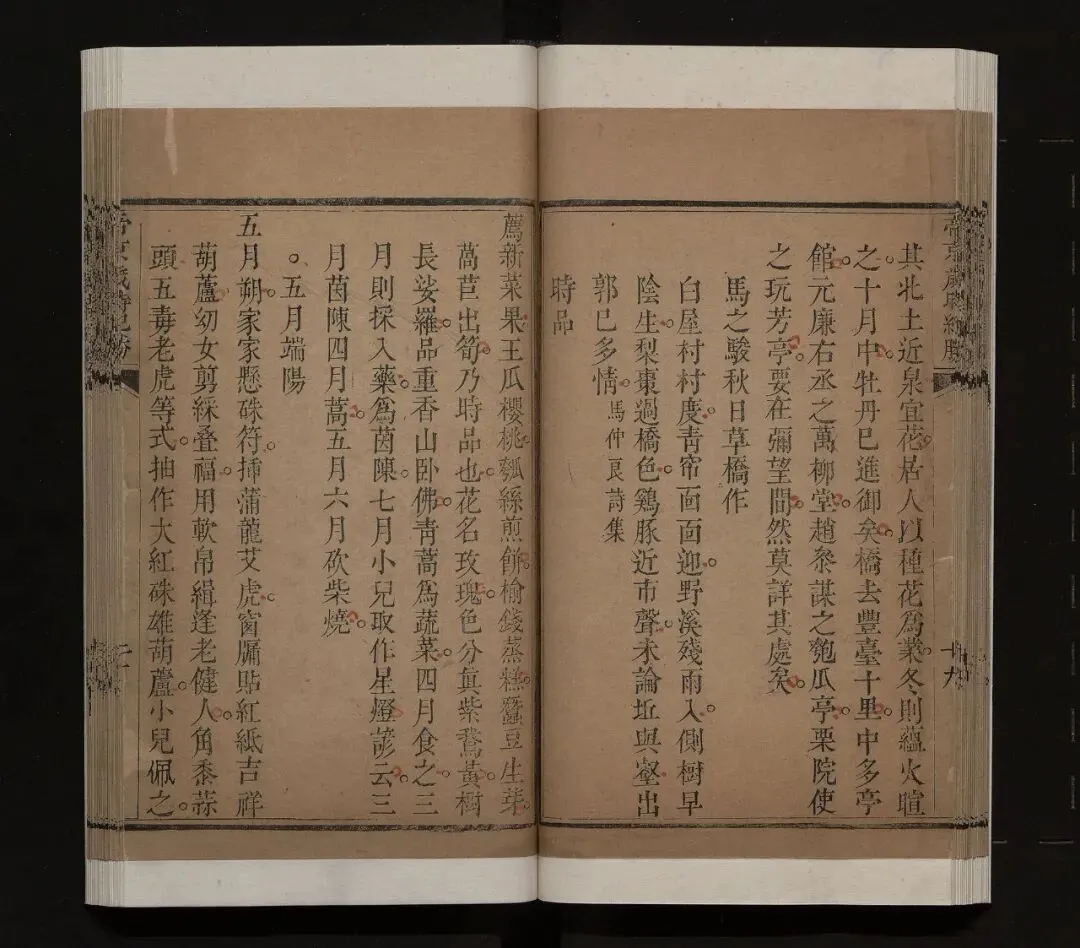 其北土近泉宜花居人以種花爲業冬則蘊火暄
之十月中牡丹已進御矣橋去豐臺十里中多亭
館元廉右丞之萬柳堂趙叅謀之匏瓜亭栗院使
之玩芳亭要在彌望間然莫詳其處矣
馬之駿秋日草橋作
白屋村村度青帘面面迎野溪殘雨入側樹早
陰生梨棗過橋色鷄豚近市聲未論坵與壑出
郭已多情馬仲良詩集
時品
薦新菜果王瓜櫻桃瓠絲煎餅榆錢蒸糕蠶豆生芽
萵苣出筍乃時品也花名玫瑰色分真紫鵞黃樹
長娑羅品重香山卧佛青蒿爲蔬菜四月食之三
月則採入藥爲茵陳七月小兒取作星燈諺云三
月茵陳四月蒿五月六月砍柴燒
五月端陽
五月朔家家懸硃符揷蒲龍艾虎窗牖貼紅紙吉祥
葫蘆幼女剪綵叠福用軟帛緝逢老健人角黍蒜
頭五毒老虎等式抽作大紅硃雄葫蘆小兒佩之